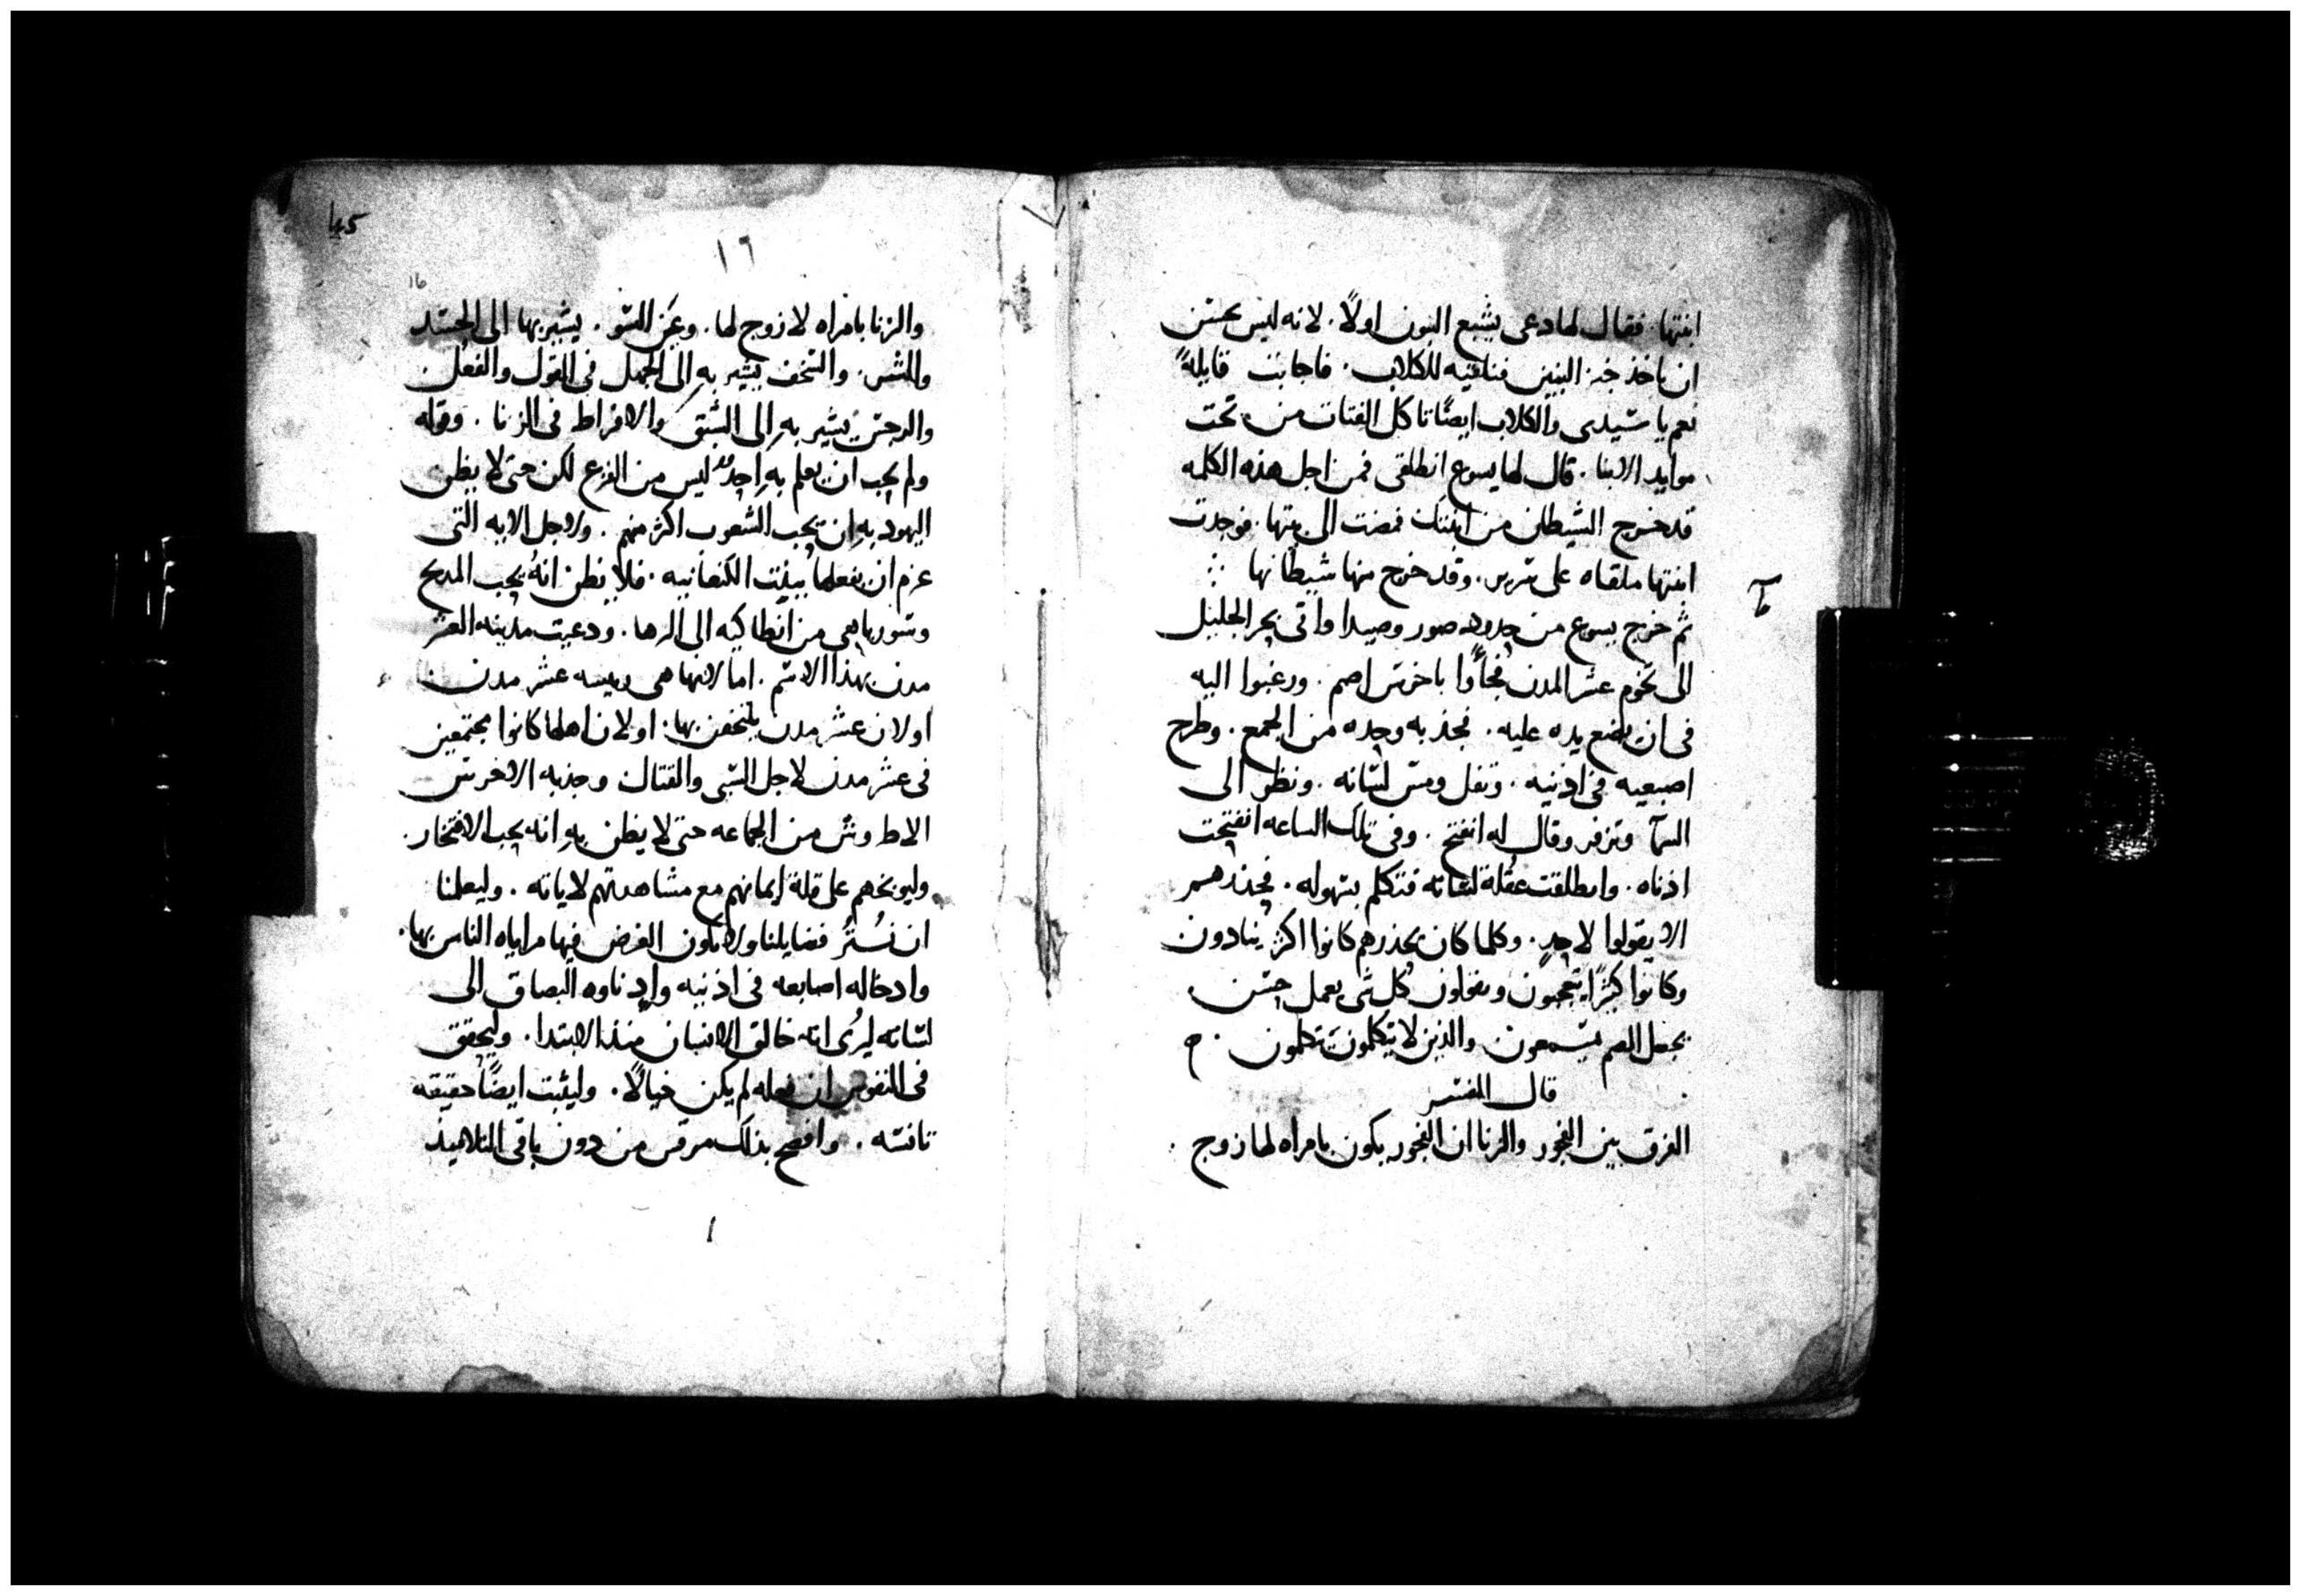 ابنتها. فقال لها دعى يشبع البنون اولًا. لانه ليس بحسن
ان ناخذ خبز البنين فنلقيه للكلاب. فاجابت قايلةً
نعم يا سيدى والكلاب ايضًا تاكل الفتات من تحت
موايد الابنا. قال لها يسوع انطلقى فمن اجل هذه الكلمه
قد خرج الشيطان من ابنتك فمضت الى بيتها. فوجدت
ابنتها ملقاه على سرير. وقد خرج منها شيطانها
ثم خرج يسوع من حدود صور وصيدا واتى بحر الجليل
الى تخوم عشر المدن فجاوا باخرس اصم. ورغبوا اليه
فى ان يضع يده عليه. فجذبه وحده من الجمع. وطرح
اصبعيه فى اذنيه. وتفل ومس لسانه. ونظر الى
السمآ وتزفر وقال له انفتح. وفى تلك الساعه انفتحت
اذناه. وانطلقت عقلة لسانه فتكلم بسهوله. فحذرهم
الا يقولوا لاحدٍ. وكلما كان يحذرهم كانوا اكثر ينادون
وكانوا كثيرًا يتعجبون ويقولون كل شى يعمل حسن
يجعل الصم يسمعون والذين لا يتكلمون يتكلمون.
قال المفسر
الفرق بين الفجور والزنا ان الفجور يكون بامراه لها زوج.
١٦
16
والزنا بامراه لا زوج لها. وعين السو. يشير بها الى الحسد
والشر. والسخف يشير به الى الجهل فى القول والفعل
والرجس يشير بهِ الى الشبق والافراط فى الزنا. وقوله
ولم يحب ان يعلم بهِ احدٌ ليس من الفزع لكن حتى لا يظن
اليهود بهِ ان يحب الشعوب اكثر منهم. ولاجل الايه التى
عزم ان يفعلها ببنت الكنعانيه. فلا يظن انهُ يحب المديح
وسوريا هى من انطاكيه الى الرها. ودعيت مدينه العشر
مدن بهذا الاسم. اما لانها هى رييسه عشر مدن
او لان عشر مدن يلتحفن بها. او لان اهلها كانوا مجتمعين
فى عشر مدن لاجل السبى والقتال وجذبه الاخرس
الاطروش من الجماعه حتى لا يظن بهِ انه يحب الافتخار.
وليوبخهم على قلة ايمانهم مع مشاهدتهم لاياته. وليعلمنا
ان نَسْتُر فضايلنا ولا يكون الغرض فيها مراياه الناس بها.
وادخاله اصابعه فى اذنيه وادناوه البصاق الى
لسانه ليُرى انه خالق الانسان منذ الابتدا. وليحقق
فى النفوس ان فعله لم يكن خيالًا. وليثبت ايضًا حقيقه
تانسه. وافصح بذلك مرقس من دون باقى التلاميذ